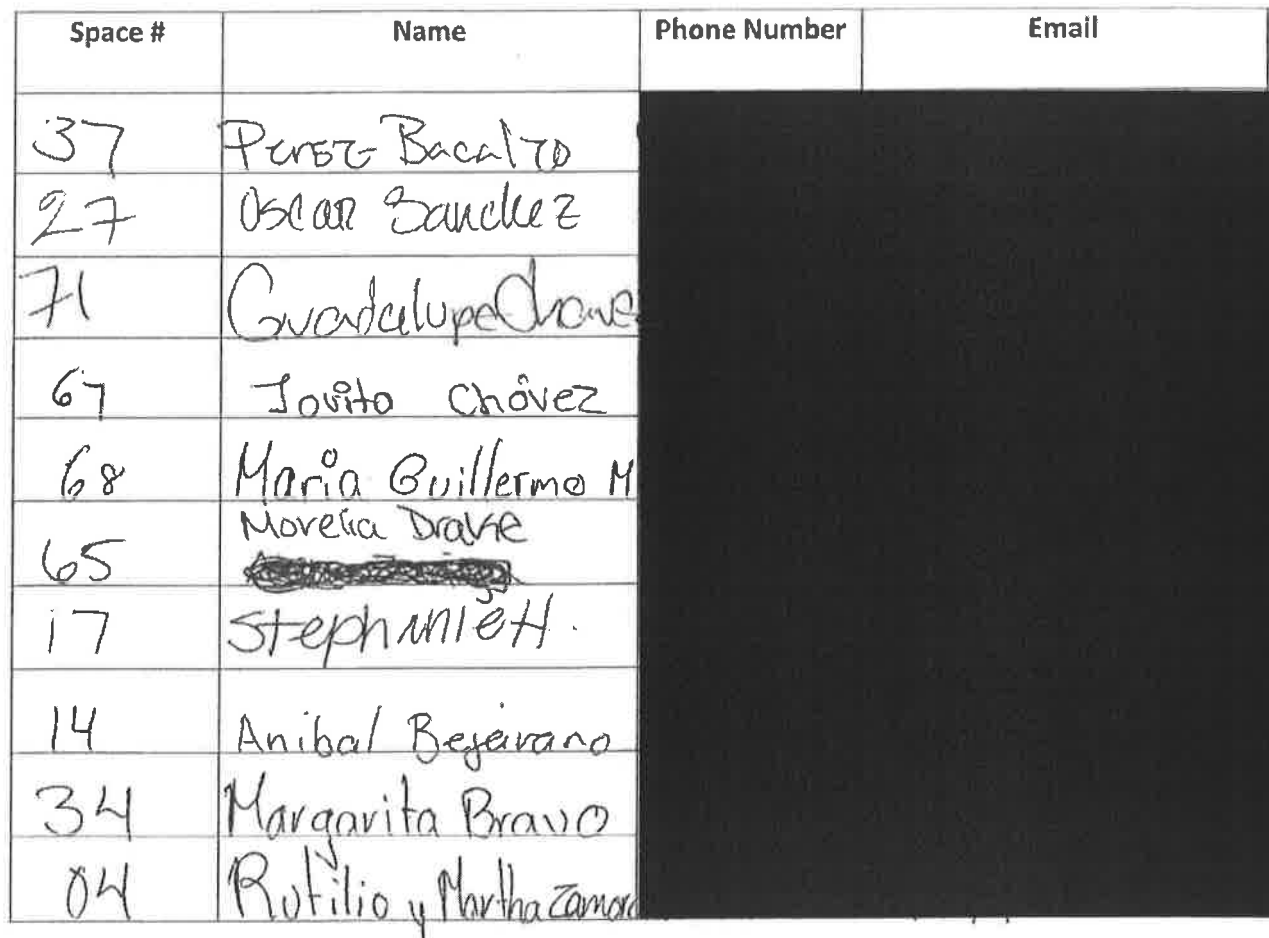 Space # Name Phone Number Email
37 Perez Bacalzo
27 Oscar Sanchez
71 Guadalupe Chave
67 Jovita Chávez
68 Maria Guillermo M
Morelia Drake
65
17 Stephanie H.
14 Anibal Bejarano
34 Margarita Bravo
04 Rutilio y Martha Zamora